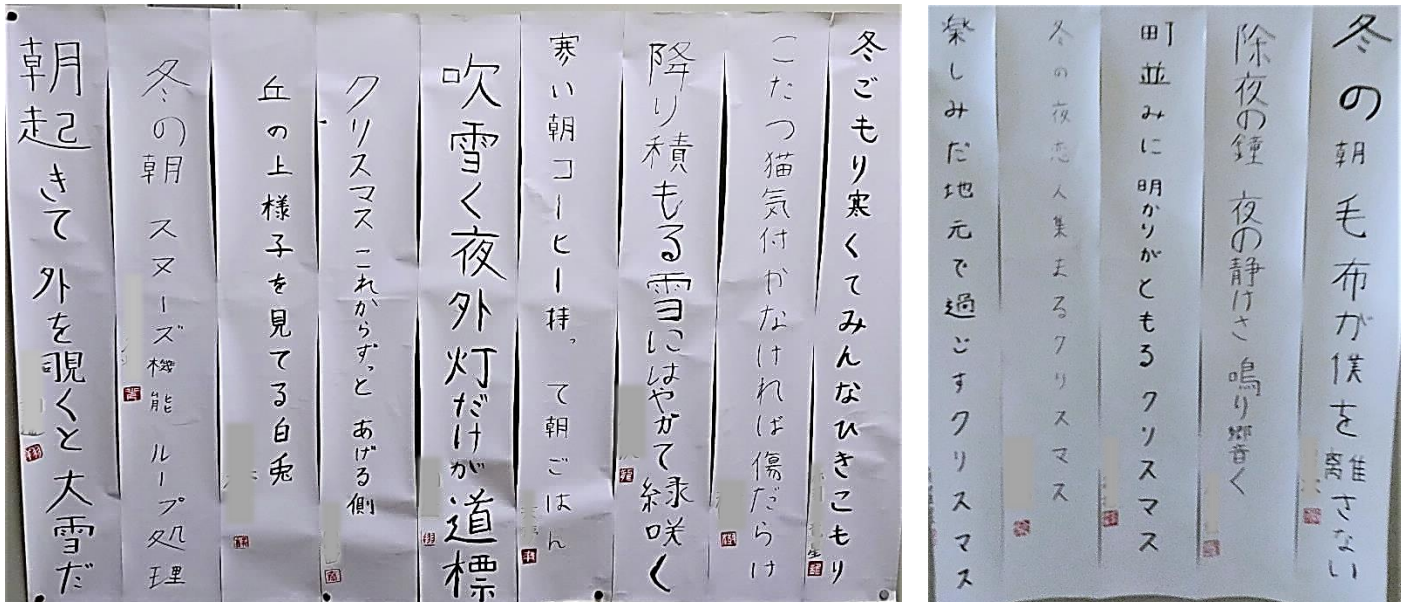 冬ごもり寒くてみんなひきこもり
こたつ猫気付かなければ傷だらけ
降り積もる雪にはやがて緑咲く
寒い朝コーヒー持って朝ごはん
吹雪く夜外灯だけが道標
クリスマスこれからずっとあげる側
丘の上様子を見てる白兎
冬の朝スヌーズ機能ループ処理
朝起きて外を覗くと大雪だ
冬の朝毛布が僕を離さない
除夜の鐘 夜の静けさ 鳴り響く
町並みに明かりがともるクリスマス
冬の夜恋人集まるクリスマス
楽しみだ地元で過ごすクリスマス